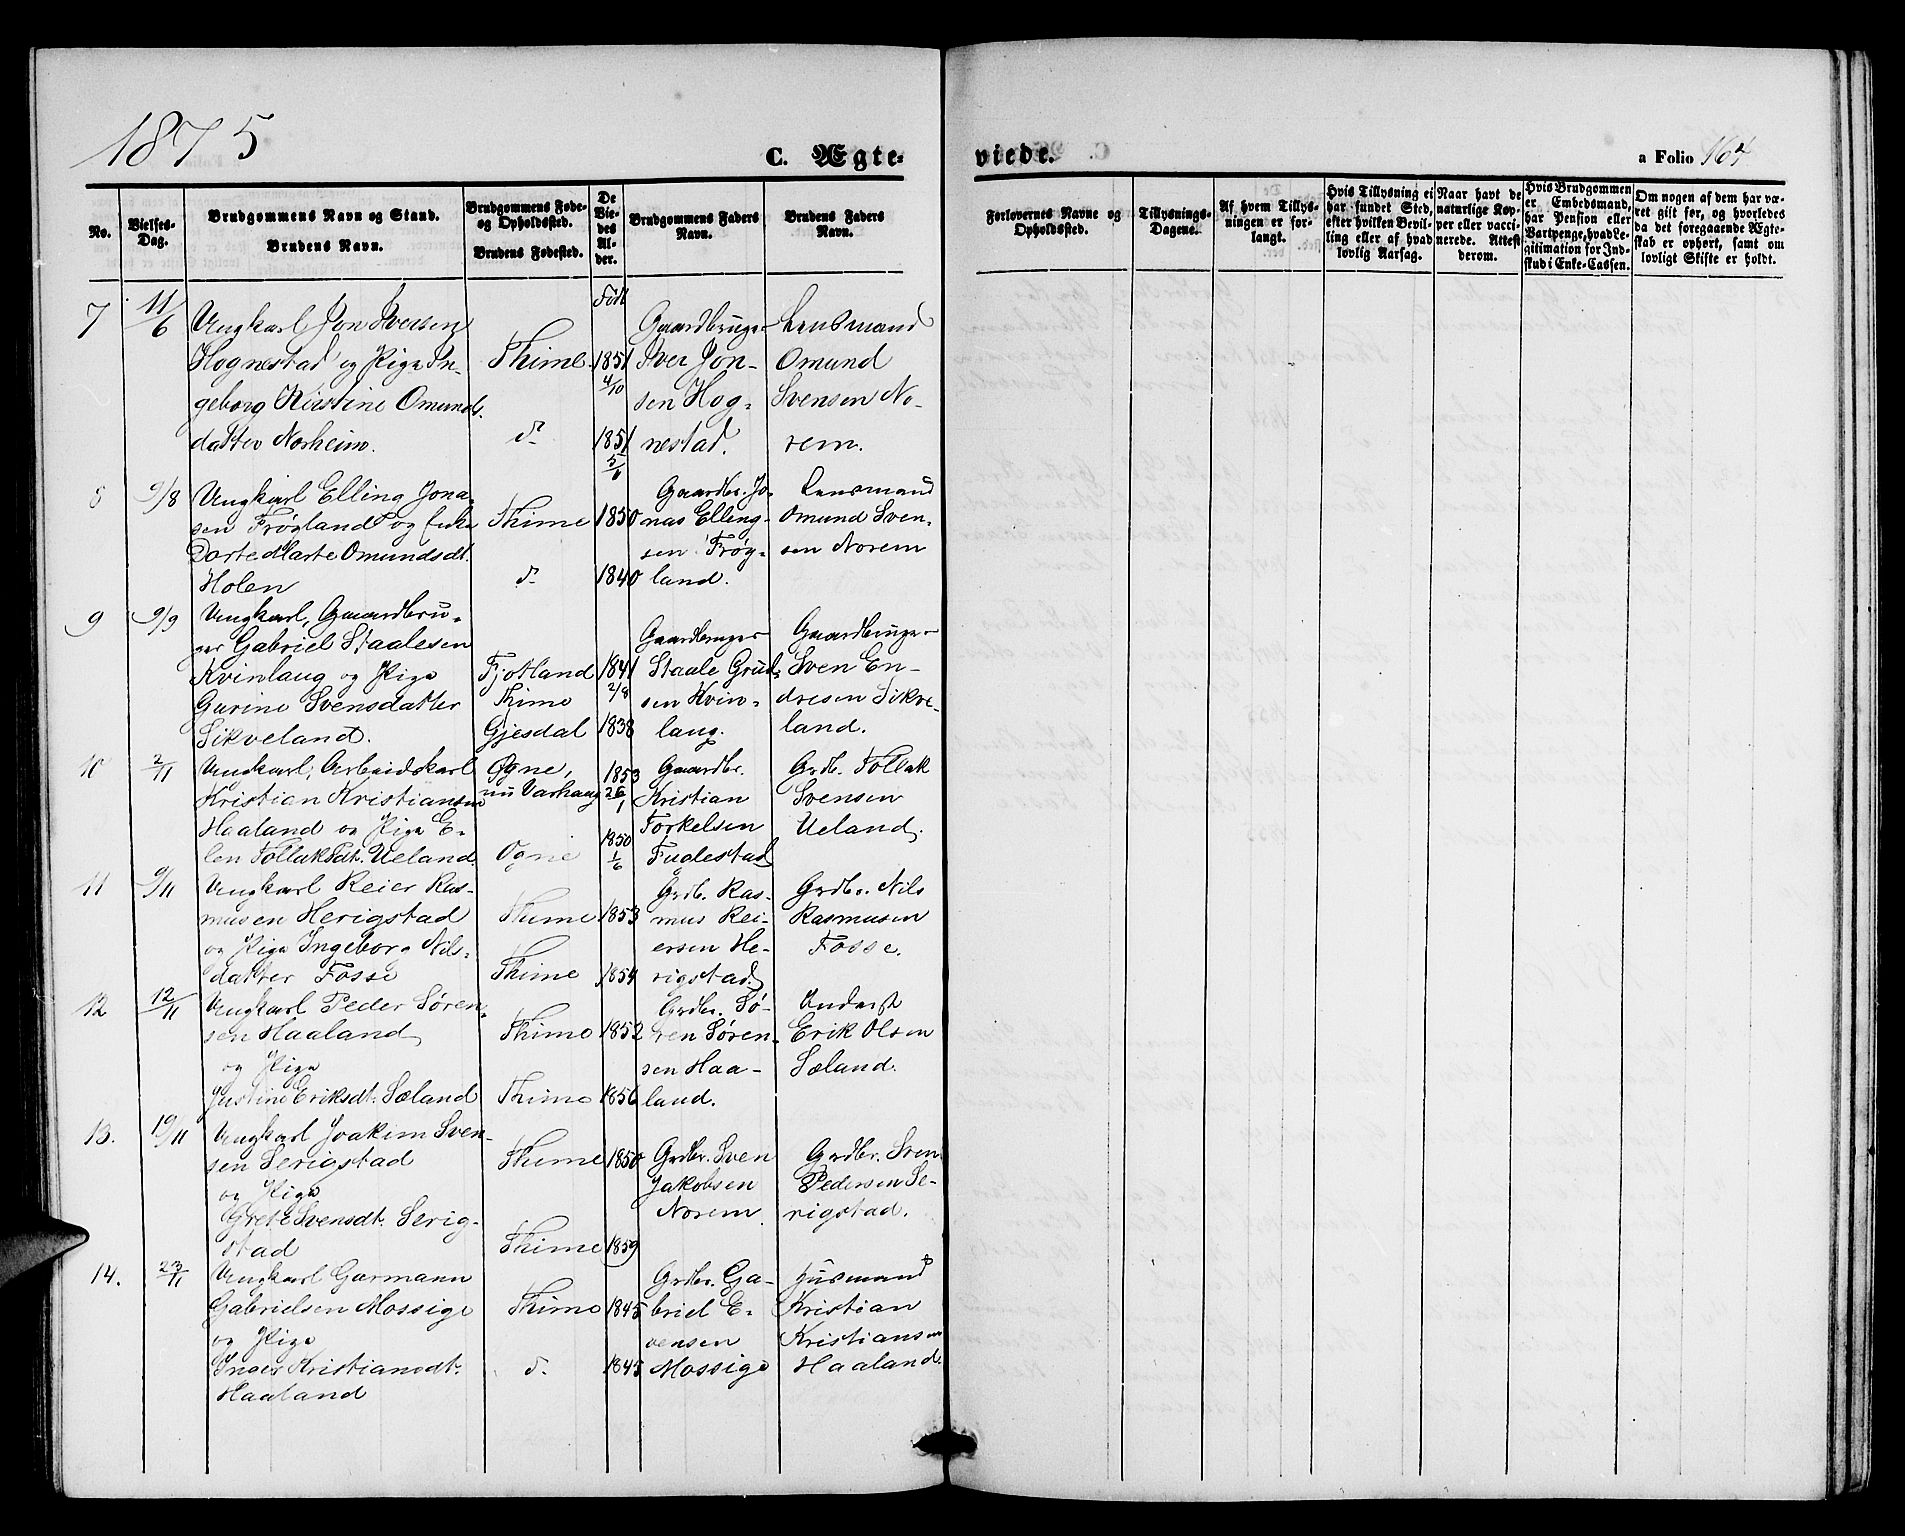 1875
C. Ægte-
viede.
a Folio 164
No.
Vielses-
Dag.
Brudgommens Navn og Stand.
Brudens Navn.
Brudgommens Føde-
og Opholdssted.
Brudens Fødested.
De
Vie-
des
Al-
der.
Brudgommens Faders
Navn.
Brudens Faders
Navn.
Forlovernes Navne og
Opholdssted.
Tillysnings-
Dagene.
Af hvem Tillys-
ningen er for-
langt.
Hvis Tillysning ei
har fundet Sted,
efter hvilken Bevil-
ling eller af hvad
lovlig Aarsag.
Naar havt de
naturlige Kop-
per eller vacci-
nerede. Attest
derom.
Hvis Brudgommen
er Embedsmand,
har Pension eller
Vartpenge, hvad Le-
gitimation for Ind-
skud i Enke-Cassen.
Om nogen af dem har væ-
ret gift før, og hvorledes
da det foregaaende Ægte-
skab er ophørt, samt om
lovligt Skifte er holdt.
7
11/6
Ungkarl Jon Iversen
Hognestad og Pige In-
geborg Kirstine Omunds-
datter Norheim.
Thime
d°
Født
1851
4/10
1851
Gaardbruger
Iver Jon-
sen Hog-
nestad.
Lensmand
Omund
Svensen No-
rem.
8
9/8
Ungkarl Elling Jona-
sen Frøyland og Enke
Dorte Marte Omundsdt.
Holen
Thime
d°
1850
1840
Gaardbr. Jo-
nas Elling-
sen Frøy-
land.
Lensmand
Omund Sven-
sen Norem
9
9/9
Ungkarl, Gaardbru-
ger Gabriel Staalesen
Kvinlaug og Pige
Gurine Svensdatter
Sikveland.
Fjotland
Thime
Gjesdal
1841
2/8
1838
Gaardbruger
Staale Grud-
sen Kvin-
laug.
Gaardbruger
Sven En-
dresen Sikve-
land.
10
2/11
Ungkarl, Arbeidskarl
Kristian Kristiansen
Haaland og Pige E-
len Tollaksdt. Ueland.
Ogne,
nu Varhaug
Ogne
1853
26/1
1850
1/6
Gaardbr.
Kristian
Torkelsen
Fuglestad
Grdb. Tollak
Svensen
Ueland.
11
9/11
Ungkarl Reier Ras-
musen Herigstad
og Pige Ingeborg Nils-
datter Fosse
Thime
Thime
1853
1854
Grdb. Ras-
mus Rei-
ersen He-
rigstad.
Grdbr. Nils
Rasmusen
Fosse.
12
12/11
Ungkarl Peder Søren-
sen Haaland
og Pige
Justine Eriksdt. Sæland
Thime
Thime
1852
1856
Grdbr. Sø-
ren Søren-
sen Haa-
land.
Erik Olsen
Sæland.
13.
19/11
Ungkarl Joakim Sven-
sen Serigstad
og Pige
Grete Svensdt. Serig-
stad
Thime
Thime
1850
1859
Grdbr. Sven
Jakobsen
Norem
Grdbr. Sven
Pedersen Se-
rigstad.
14.
23/11
Ungkarl Garmann
Gabrielsen Mossige
og Pige
Inger Kristiansdt.
Haaland
Thime
d°
1845
1845
Grdbr. Ga-
briel E-
vensen
Mossige
Husmand
Kristian
Kristiansen
Haaland.